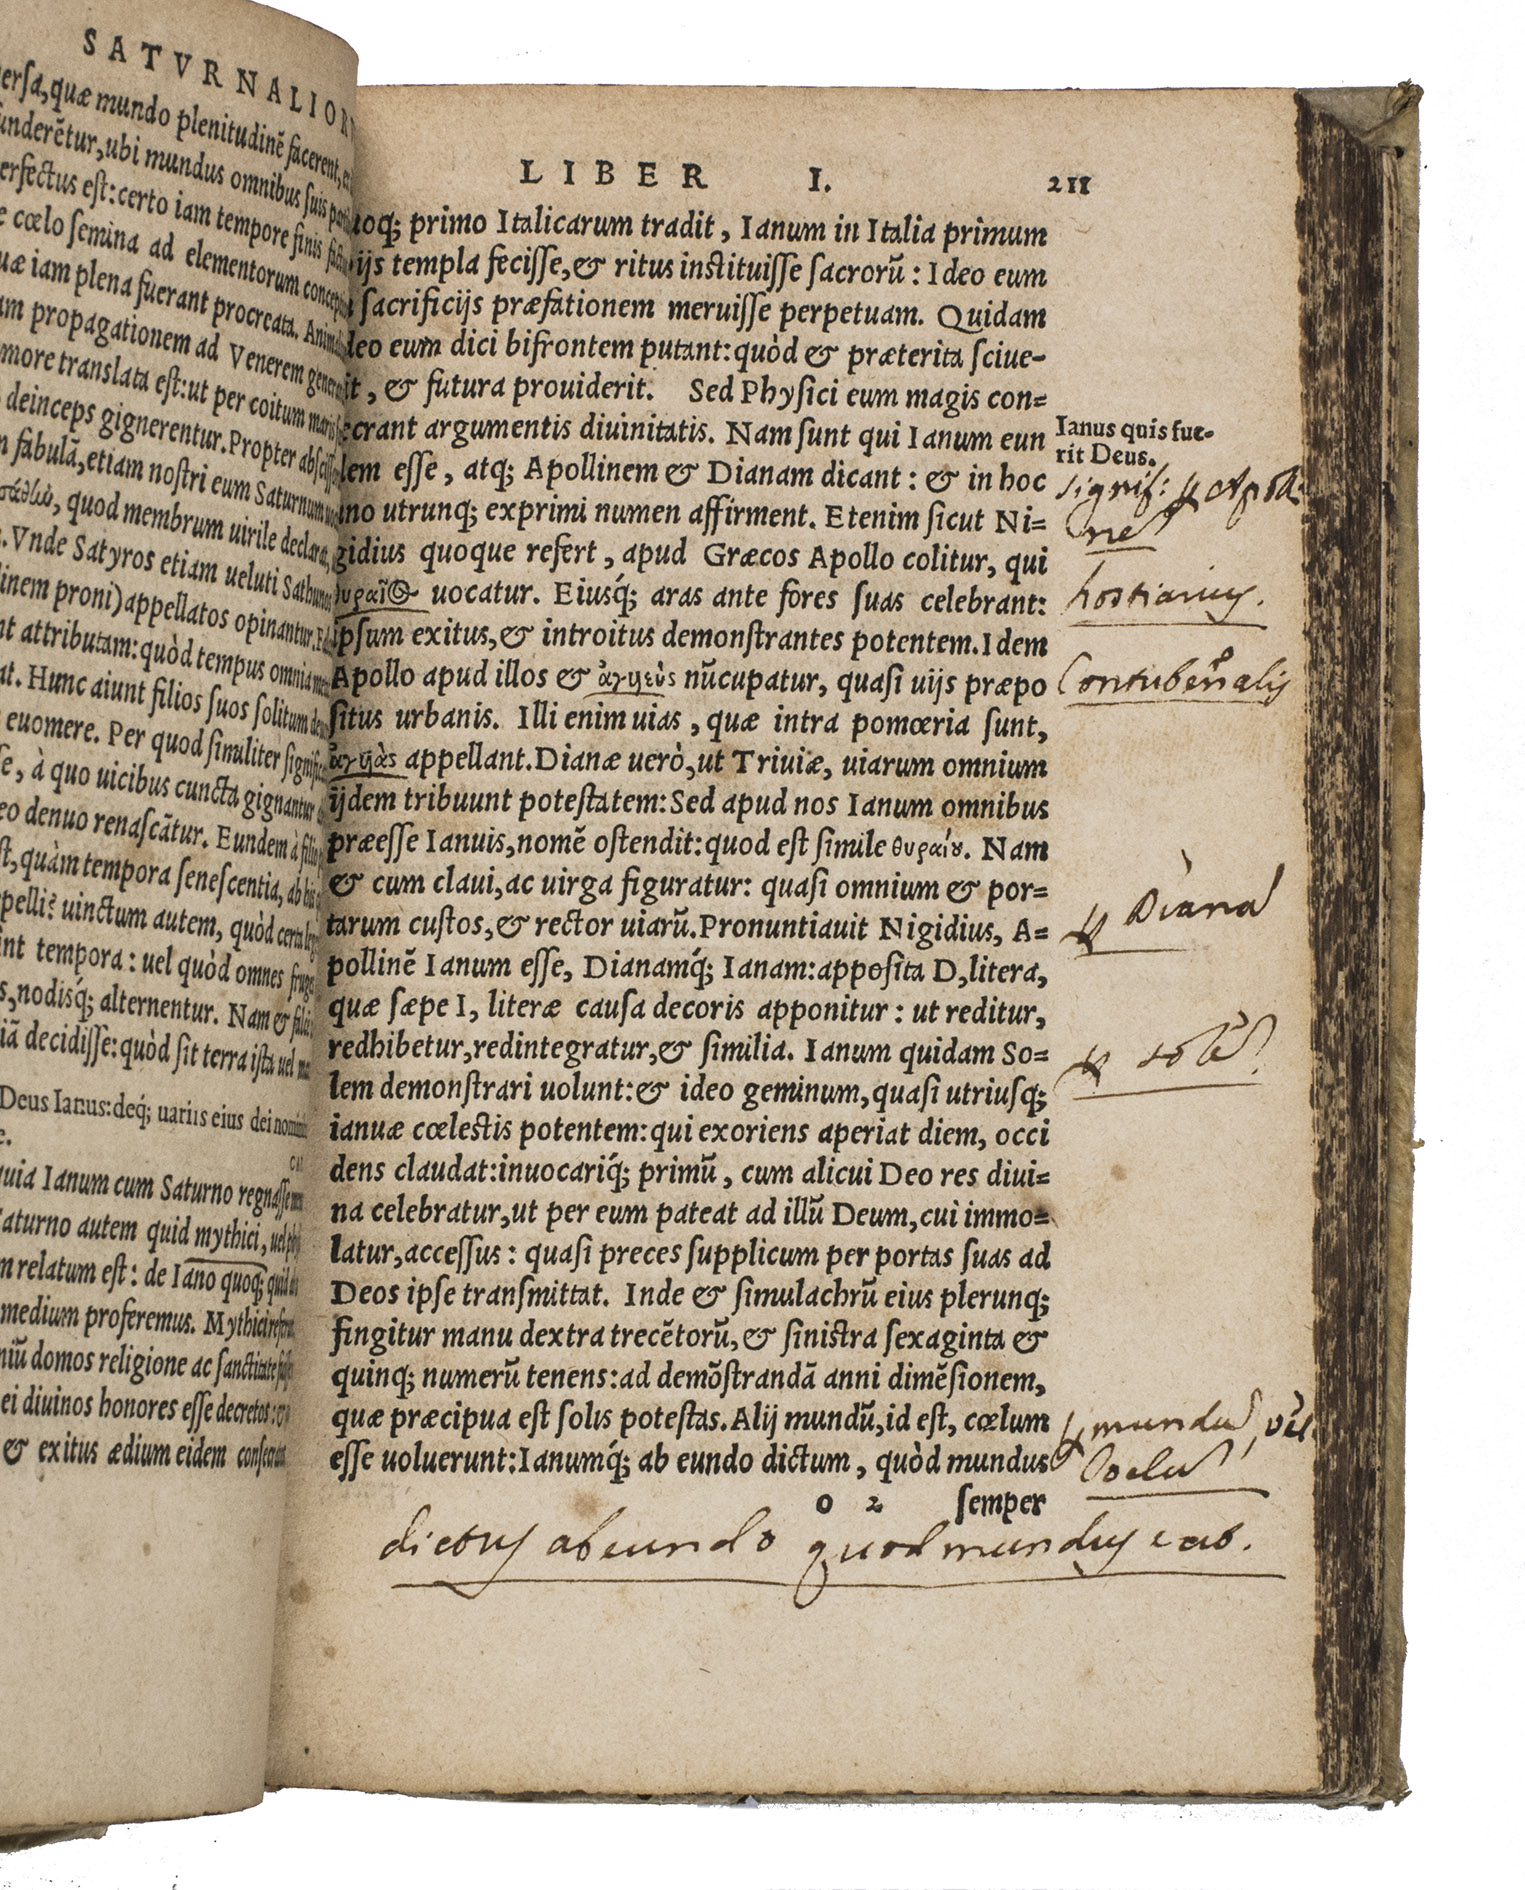 SATVRNALIOR
ersa, quæ mundo plenitudinē facerent,
underētur, ubi mundus omnibus suis
erfectus est: certo iam tempore finis
e cœlo semina ad elementorum
uæ iam plena fuerant procreata.
um propagationem ad Venerem
more translata est: ut per coitum maris
deinceps gignerentur. Propter
m fabulā, etiam nostri eum Saturnum
quod membrum uirile declarat,
. Vnde Satyros etiam ueluti Sathunos
linem proni) appellatos opinantur.
nt attributam: quòd tempus omnia
at. Hunc aiunt filios suos solitum
euomere. Per quod similiter
se, à quo uicibus cuncta gignantur
eo denuo renascātur. Eundem à
st, quàm tempora senescentia,
ppelli? uinctum autem, quòd certa
int tempora: uel quòd omnes
s, nodisq́; alternentur. Nam &
iā decidisse: quòd sit terra ista uel
Deus Ianus: deq́; uariis eius dei
uia Ianum cum Saturno
Saturno autem quid mythici,
m relatum est: de Iano quoq;
medium proferemus. Mythici
niū domos religione ac sanctitate
ei diuinos honores esse decretos:
& exitus ædium eidem
LIBER I. 211
uoq; primo Italicarum tradit, Ianum in Italia primum
ijs templa fecisse, & ritus instituisse sacrorū: Ideo eum
sacrificijs præfationem meruisse perpetuam. Quidam
deo eum dici bifrontem putant: quòd & præterita sciue-
it, & futura prouiderit. Sed Physici eum magis con=
ecrant argumentis diuinitatis. Nam sunt qui Ianum eun
dem esse, atq; Apollinem & Dianam dicant: & in hoc
uno utrunq; exprimi numen affirment. Etenim sicut Ni=
gidius quoque refert, apud Græcos Apollo colitur, qui
θυραῖος uocatur. Eiusq́; aras ante fores suas celebrant:
ipsum exitus, & introitus demonstrantes potentem. Idem
Apollo apud illos & ἀγυιεὺς nūcupatur, quasi uijs præpo
situs urbanis. Illi enim uias, quæ intra pomœria sunt,
ἀγυιὰς appellant. Dianæ uerò, ut Triuiæ, uiarum omnium
ijdem tribuunt potestatem: Sed apud nos Ianum omnibus
præesse Ianuis, nomē ostendit: quod est simile θυραίου. Nam
& cum claui, ac uirga figuratur: quasi omnium & por=
tarum custos, & rector uiarū. Pronuntiauit Nigidius, A=
pollinē Ianum esse, Dianamq́; Ianam: apposita D, litera,
quæ sæpe I, literæ causa decoris apponitur: ut reditur,
redhibetur, redintegratur, & similia. Ianum quidam So=
lem demonstrari uolunt: & ideo geminum, quasi utriusq;
ianuæ cœlestis potentem: qui exoriens aperiat diem, occi
dens claudat: inuocariq́; primū, cum alicui Deo res diui=
na celebratur, ut per eum pateat ad illū Deum, cui immo=
latur, accessus: quasi preces supplicum per portas suas ad
Deos ipse transmittat. Inde & simulachrū eius plerunq;
fingitur manu dextra trecētorū, & sinistra sexaginta &
quinq; numerū tenens: ad demōstrandā anni dimēsionem,
quæ præcipua est solis potestas. Alij mundū, id est, cœlum
esse uoluerunt: Ianumq́; ab eundo dictum, quòd mundus
o 2 semper
Ianus quis fue-
rit Deus.
signif:
ne
hostiarius.
Contubernalis
Diana
sole
mundu vel
Coelu
dictus ab eundo quod mundus eat.